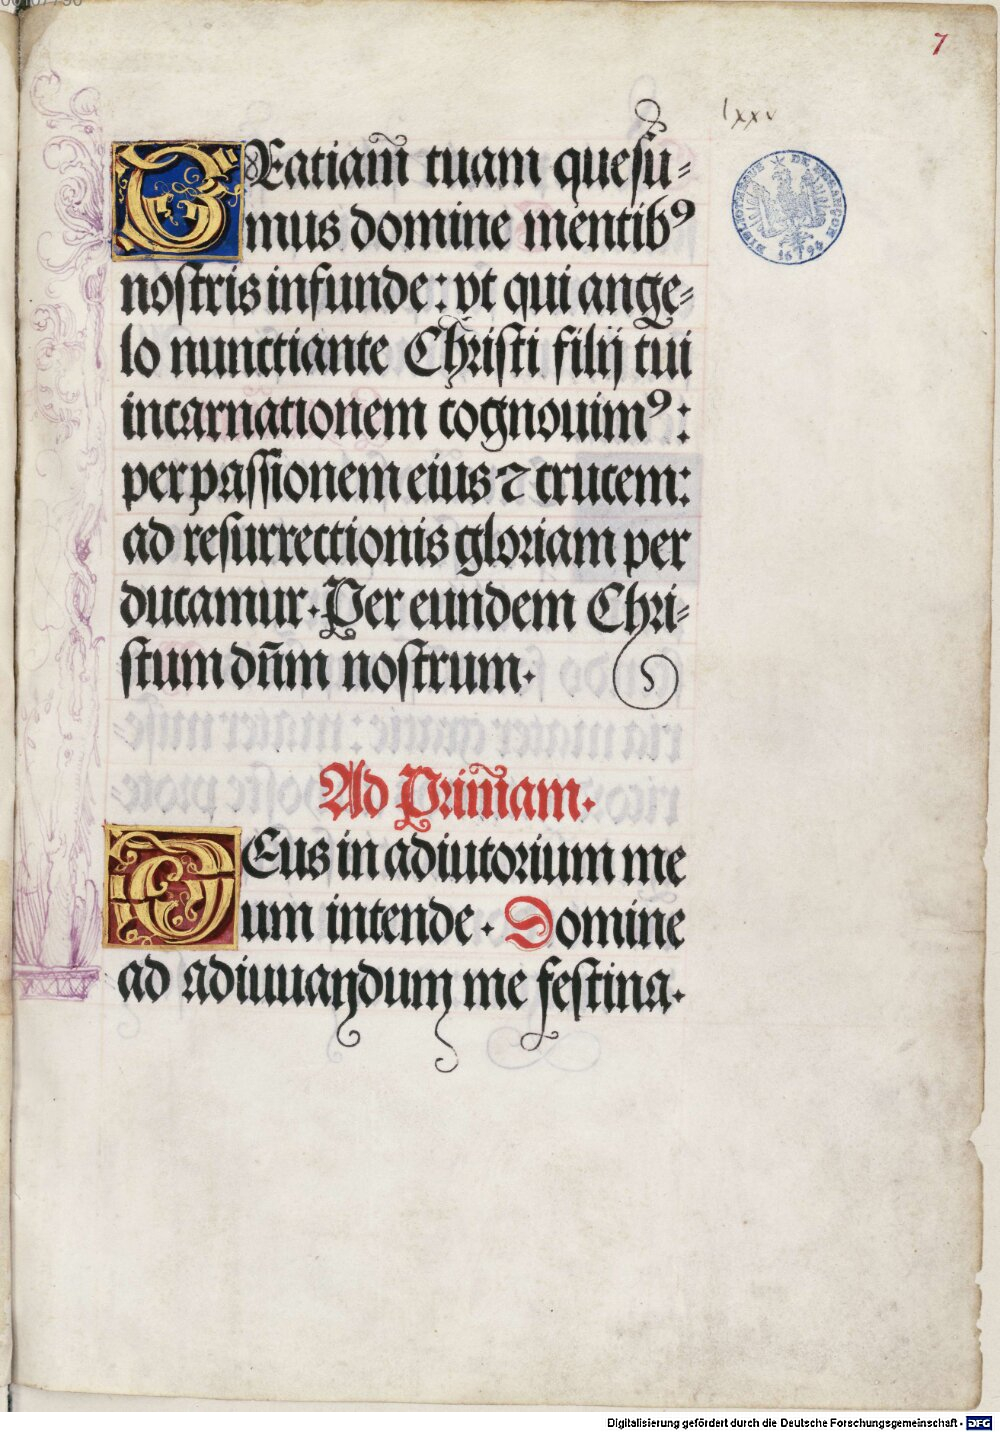 7
lxxv
BIBLIOTHEQUE DE BESANÇON
16794
GRatiam̄ tuam quesu-
mus domine mentibꝰ
nostris infunde: vt qui ange-
lo nunctiante Christi filij tui
incarnationem cognouimꝰ:
per passionem eius ⁊ crucem:
ad resurrectionis gloriam per
ducamur. Per eundem Chri-
stum dn̄m nostrum.
Ad Prim̄am.
DEus in adiutorium me
um intende. Domine
ad adiuuandum me festina.
Digitalisierung gefördert durch die Deutsche Forschungsgemeinschaft - DFG